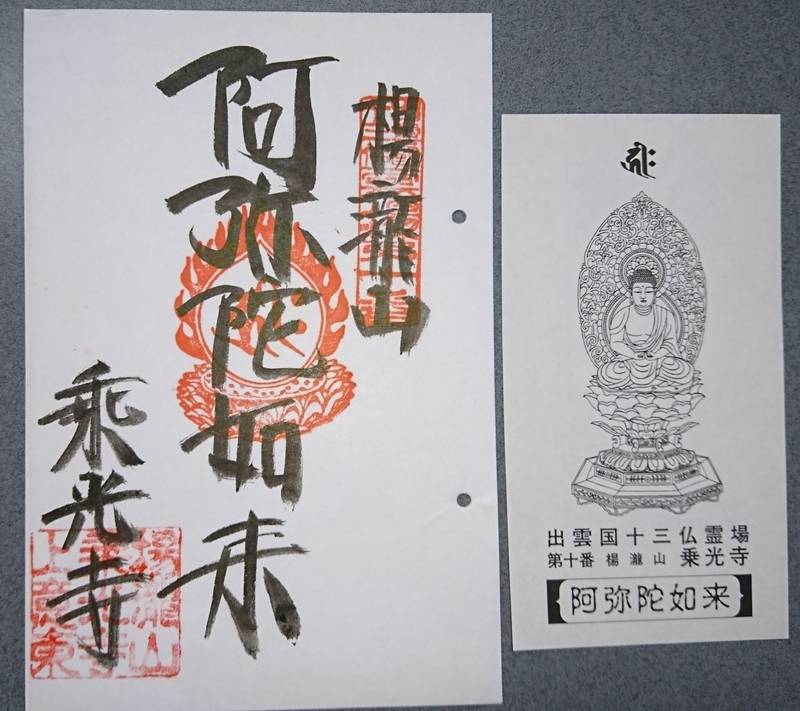 楊瀧山
阿弥陀如来
乗光寺
出雲国十三仏霊場
第十番 楊瀧山 乗光寺
阿弥陀如来